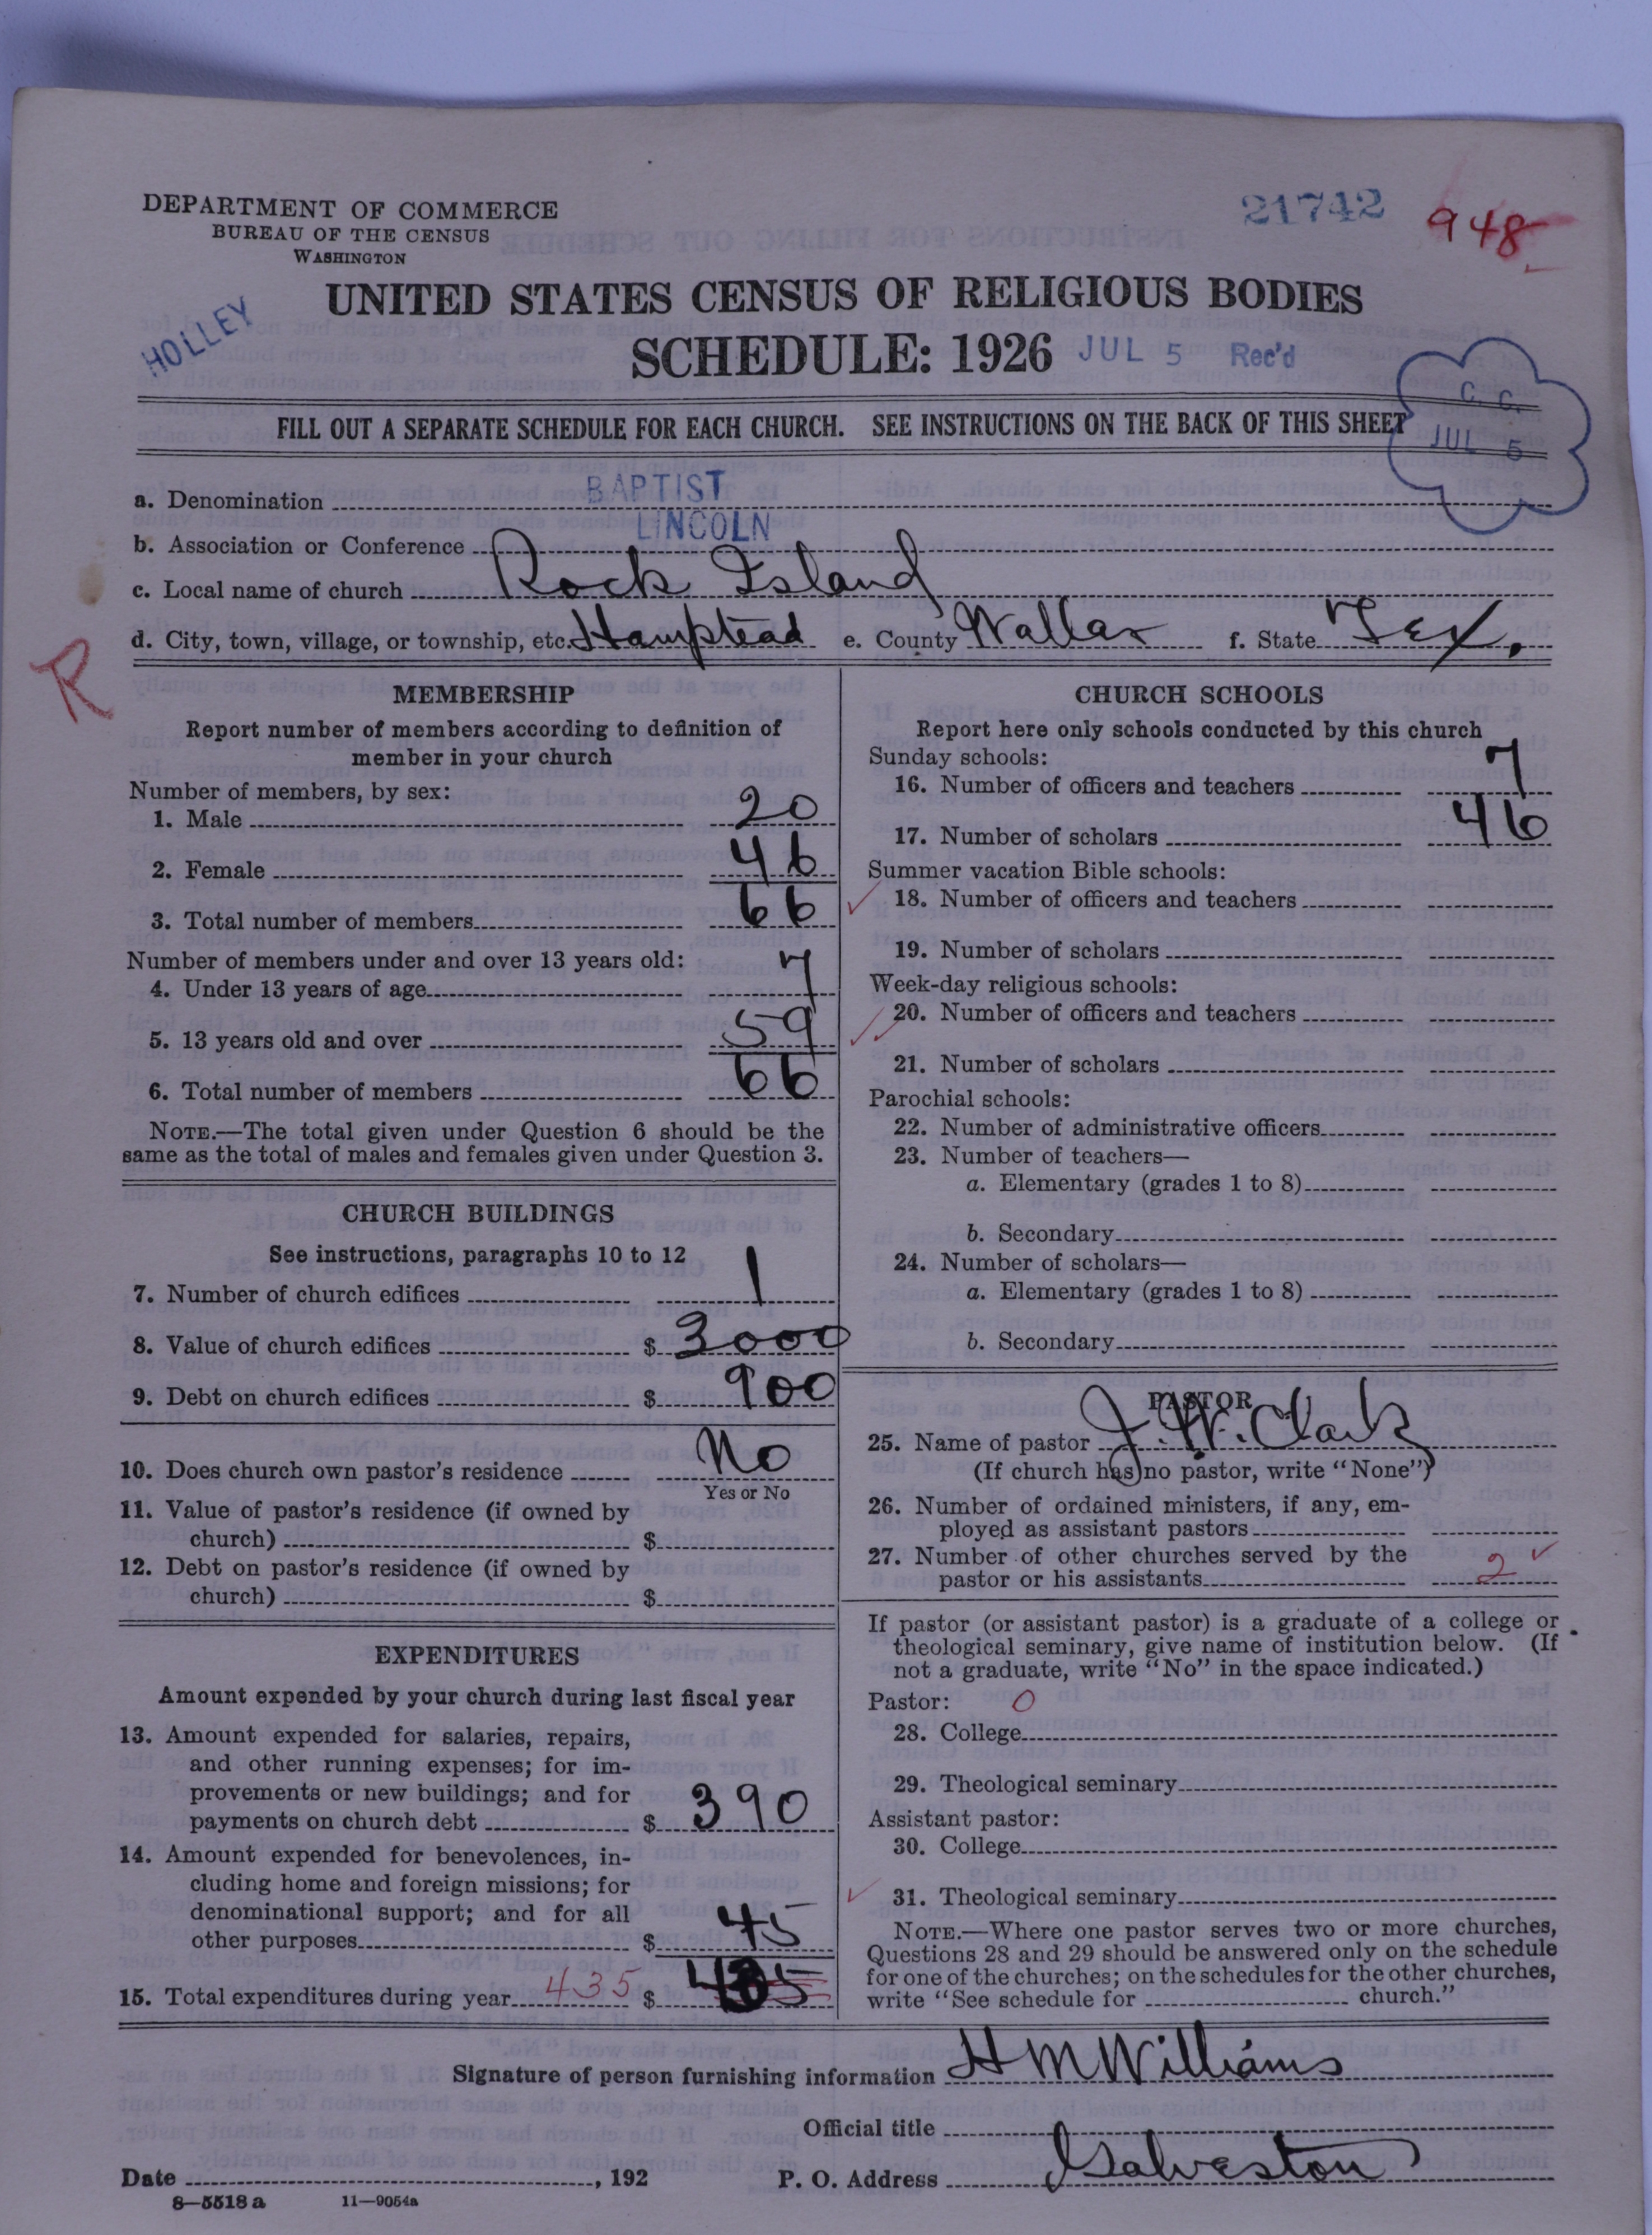 DEPARTMENT OF COMMERCE
BUREAU OF THE CENSUS
WASHINGTON
21742
948
HOLLEY
UNITED STATES CENSUS OF RELIGIOUS BODIES
SCHEDULE: 1926 JUL 5 Rec'd
C. C.
JUL 5
FILL OUT A SEPARATE SCHEDULE FOR EACH CHURCH. SEE INSTRUCTIONS ON THE BACK OF THIS SHEET
a. Denomination BAPTIST
b. Association or Conference LINCOLN
c. Local name of church Rock Island
d. City, town, village, or township, etc. Hampstead e. County Wallar f. State Tex.
R
MEMBERSHIP
Report number of members according to definition of
member in your church
Number of members, by sex:
1. Male 20
2. Female 46
3. Total number of members 66
Number of members under and over 13 years old:
4. Under 13 years of age 7
5. 13 years old and over 59
6. Total number of members 66
NOTE.—The total given under Question 6 should be the
same as the total of males and females given under Question 3.
CHURCH BUILDINGS
See instructions, paragraphs 10 to 12
7. Number of church edifices 1
8. Value of church edifices $ 3000
9. Debt on church edifices $ 900
10. Does church own pastor's residence No
Yes or No
11. Value of pastor's residence (if owned by
church) $
12. Debt on pastor's residence (if owned by
church) $
EXPENDITURES
Amount expended by your church during last fiscal year
13. Amount expended for salaries, repairs,
and other running expenses; for im-
provements or new buildings; and for
payments on church debt $ 390
14. Amount expended for benevolences, in-
cluding home and foreign missions; for
denominational support; and for all
other purposes $ 45
15. Total expenditures during year 435 $ 435
CHURCH SCHOOLS
Report here only schools conducted by this church
Sunday schools:
16. Number of officers and teachers 7
17. Number of scholars 46
Summer vacation Bible schools:
18. Number of officers and teachers
19. Number of scholars
Week-day religious schools:
20. Number of officers and teachers
21. Number of scholars
Parochial schools:
22. Number of administrative officers
23. Number of teachers—
a. Elementary (grades 1 to 8)
b. Secondary
24. Number of scholars—
a. Elementary (grades 1 to 8)
b. Secondary
PASTOR
25. Name of pastor J. W. Clark
(If church has no pastor, write "None")
26. Number of ordained ministers, if any, em-
ployed as assistant pastors
27. Number of other churches served by the
pastor or his assistants 2
If pastor (or assistant pastor) is a graduate of a college or
theological seminary, give name of institution below. (If
not a graduate, write "No" in the space indicated.)
Pastor: 0
28. College
29. Theological seminary
Assistant pastor:
30. College
31. Theological seminary
NOTE.—Where one pastor serves two or more churches,
Questions 28 and 29 should be answered only on the schedule
for one of the churches; on the schedules for the other churches,
write "See schedule for church."
Signature of person furnishing information H M Williams
Official title
Date , 192 P. O. Address Galveston
8—5518 a 11—9054a